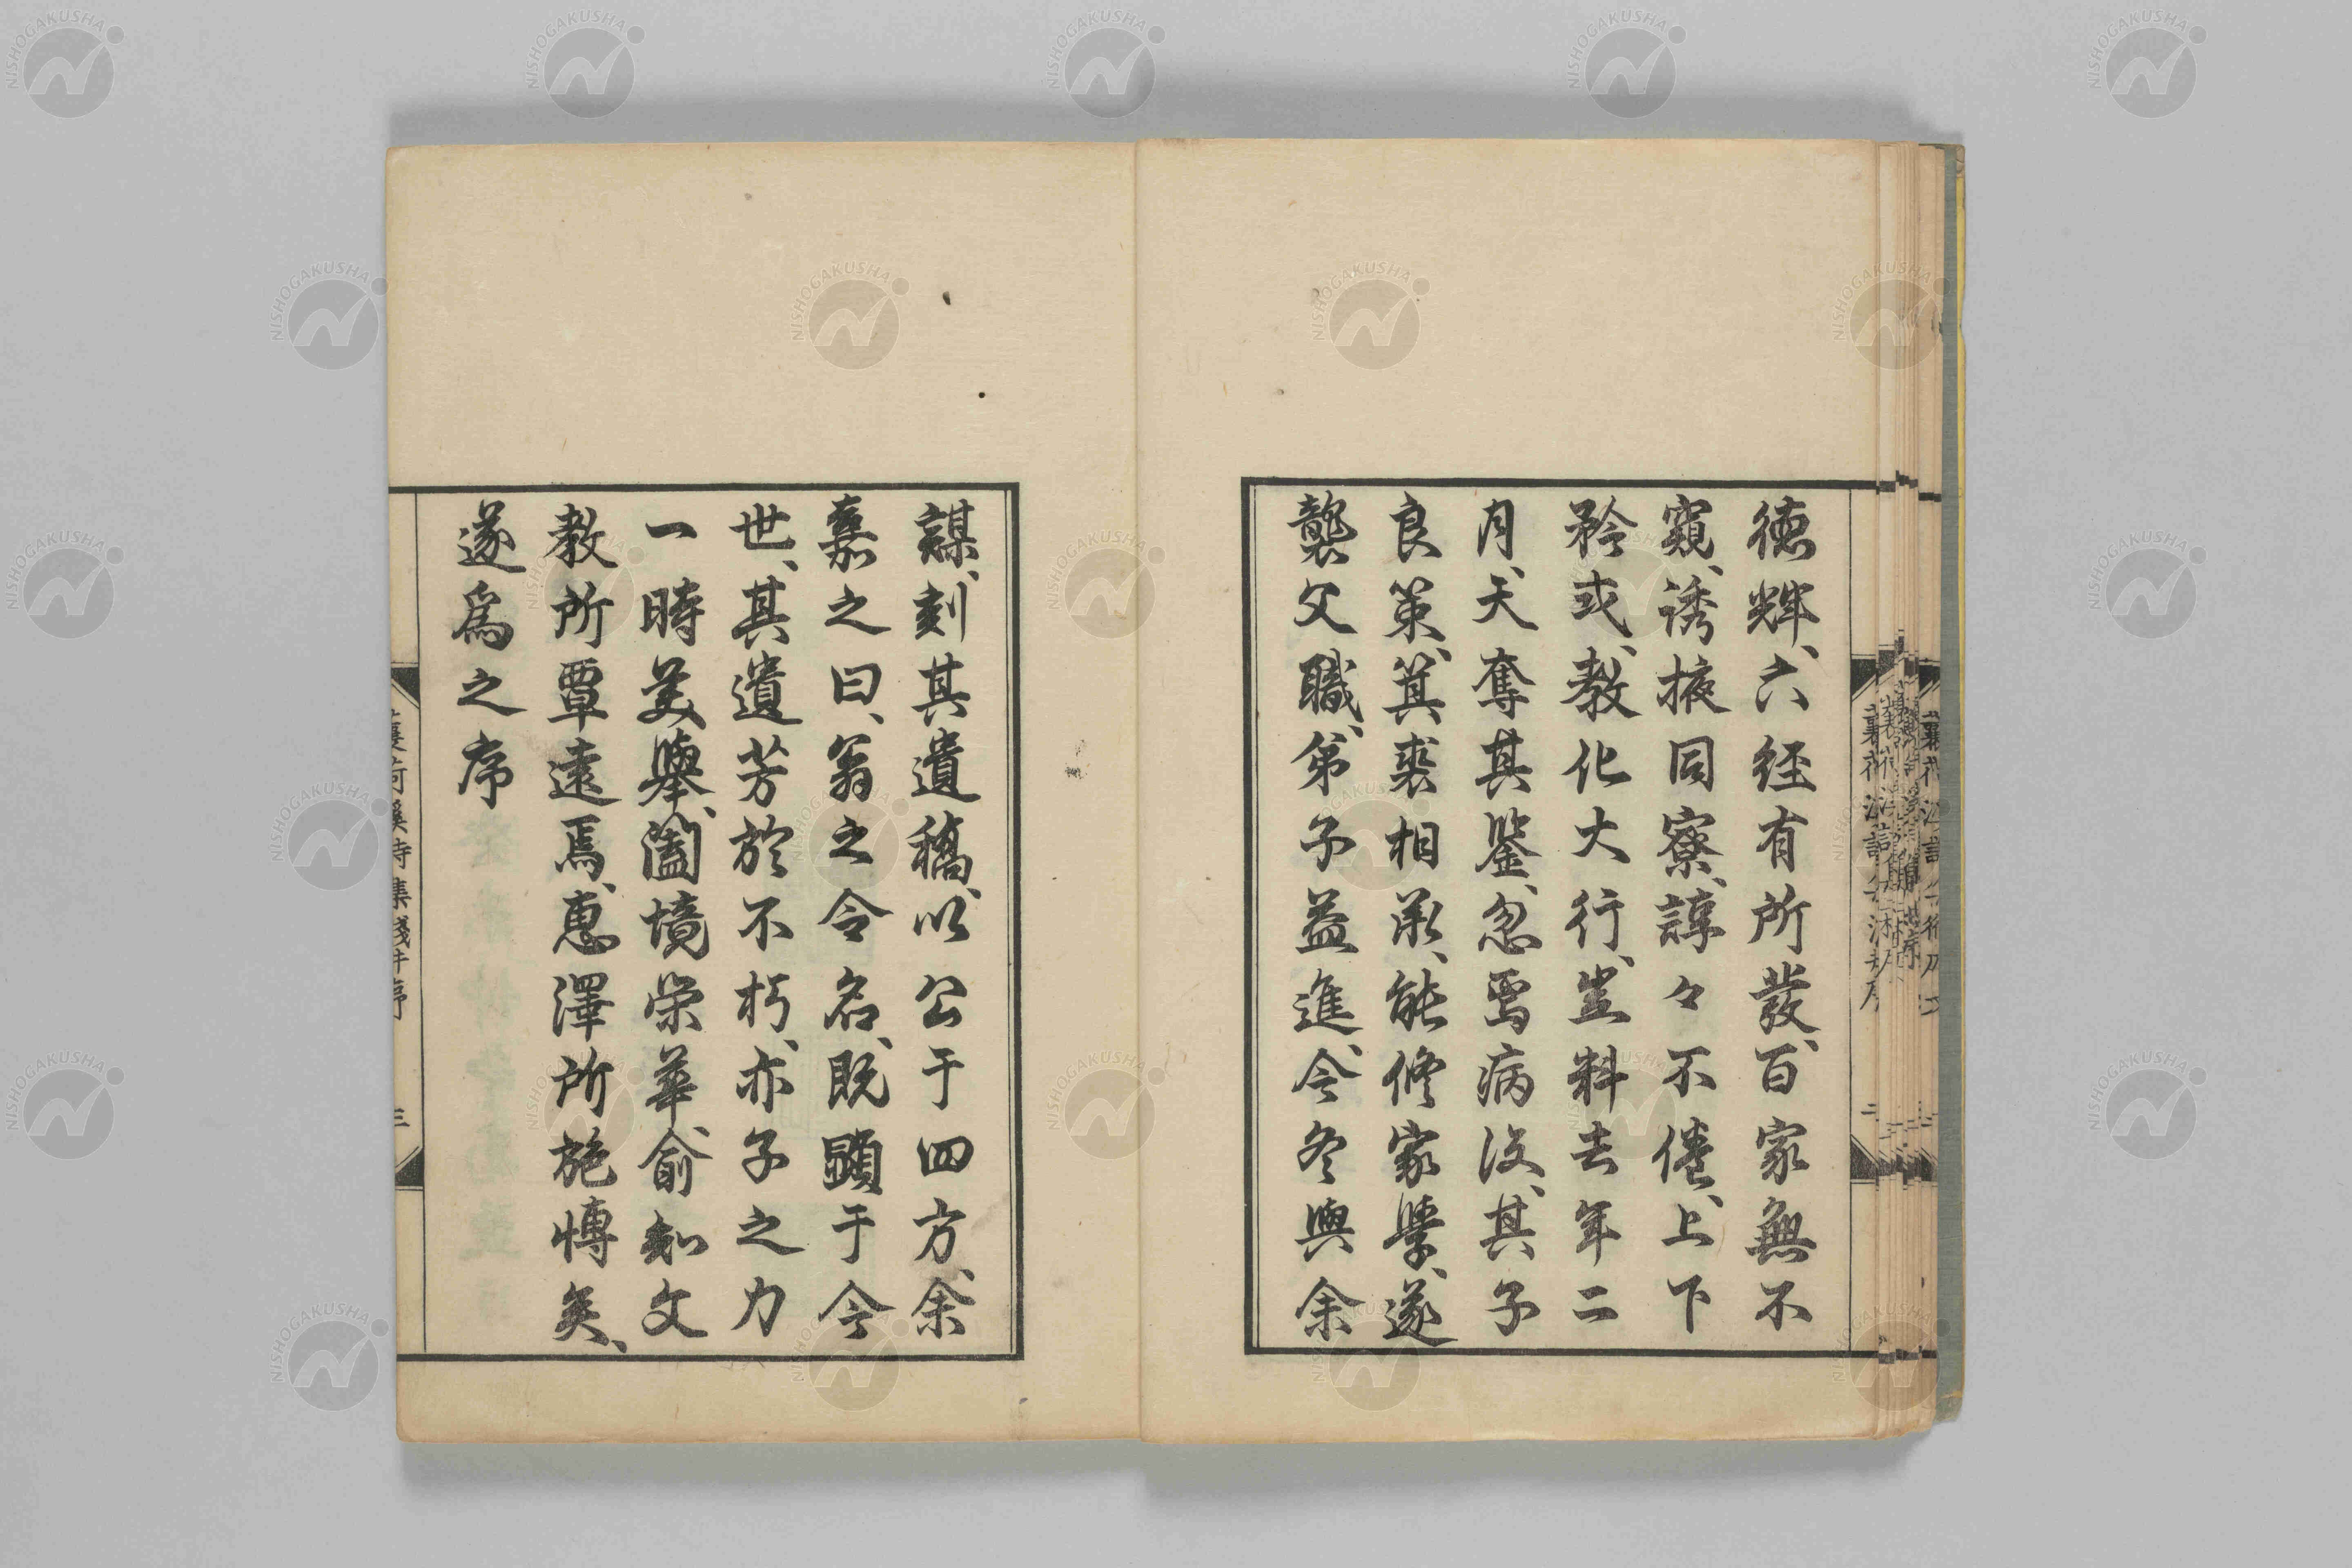 徳輝、六経有所發、百家無不
窺、誘掖同寮、諄々不倦、上下
矜式、教化大行、豈料去年二
月、天奪其鑒、忽焉病没、其子
良策、箕裘相承、能修家學、遂
襲父職、弟子益進、今冬與余
謀、刻其遺稿、以公于四方、余
嘉之曰、翁之令名、既顕于今
世、其遺芳於不朽、亦子之力
一時美擧、闔境榮華、俞知文
教所覃遠焉、恵澤所施博矣、
遂爲之序
三
NISHOGAKUSHA